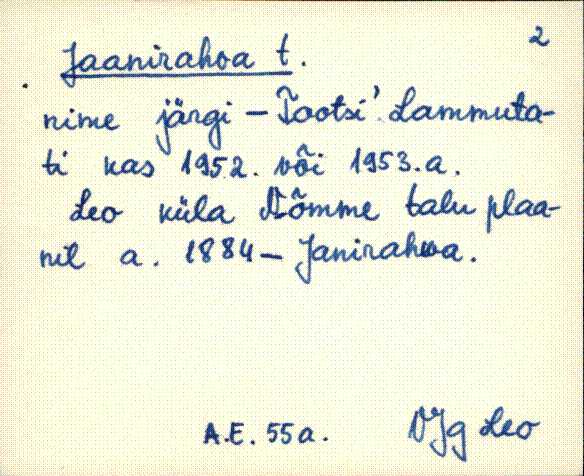 2
Jaanirahva t.
nime järgi – Tootsi'. Lammuta-
ti kas 1952. või 1953. a.
Leo küla Nõmme talu plaa-
nil a. 1884 – Janirahwa.
A.E. 55a. VJg Leo